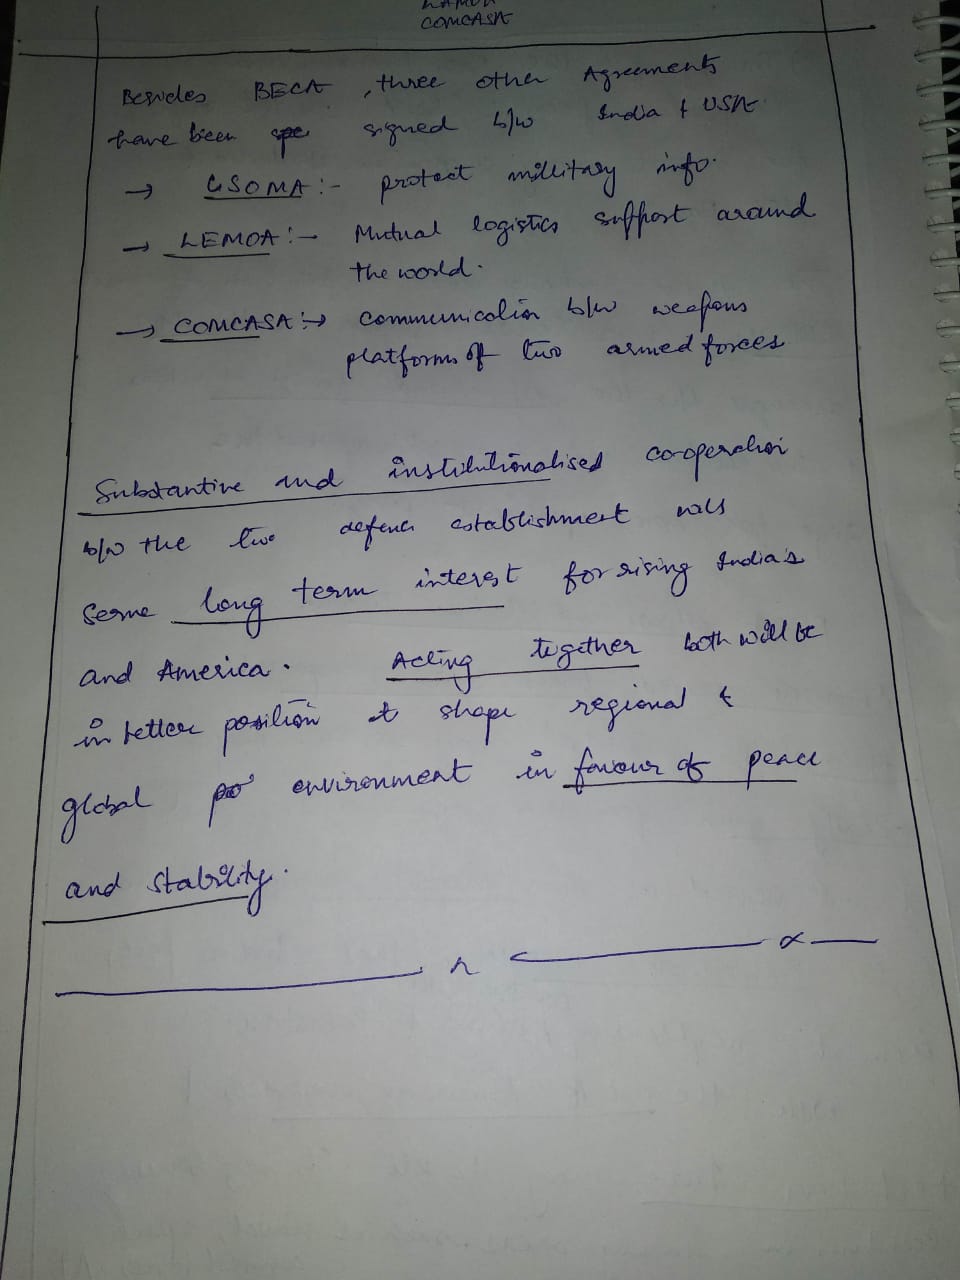 COMCASA
Besides BECA, three other Agreements
have been signed b/w India & USA
→ GSOMA :- protect millitary info.
→ LEMOA :- Mutual logistics support around
the world.
→ COMCASA :→ Communication b/w weapons
platforms of two armed forces
Substantive and institutionalised co-operation
b/w the two defence establishment will
serve long term interest for rising India's
and America. Acting together both will be
in better position to shape regional &
global environment in favour of peace
and stability.